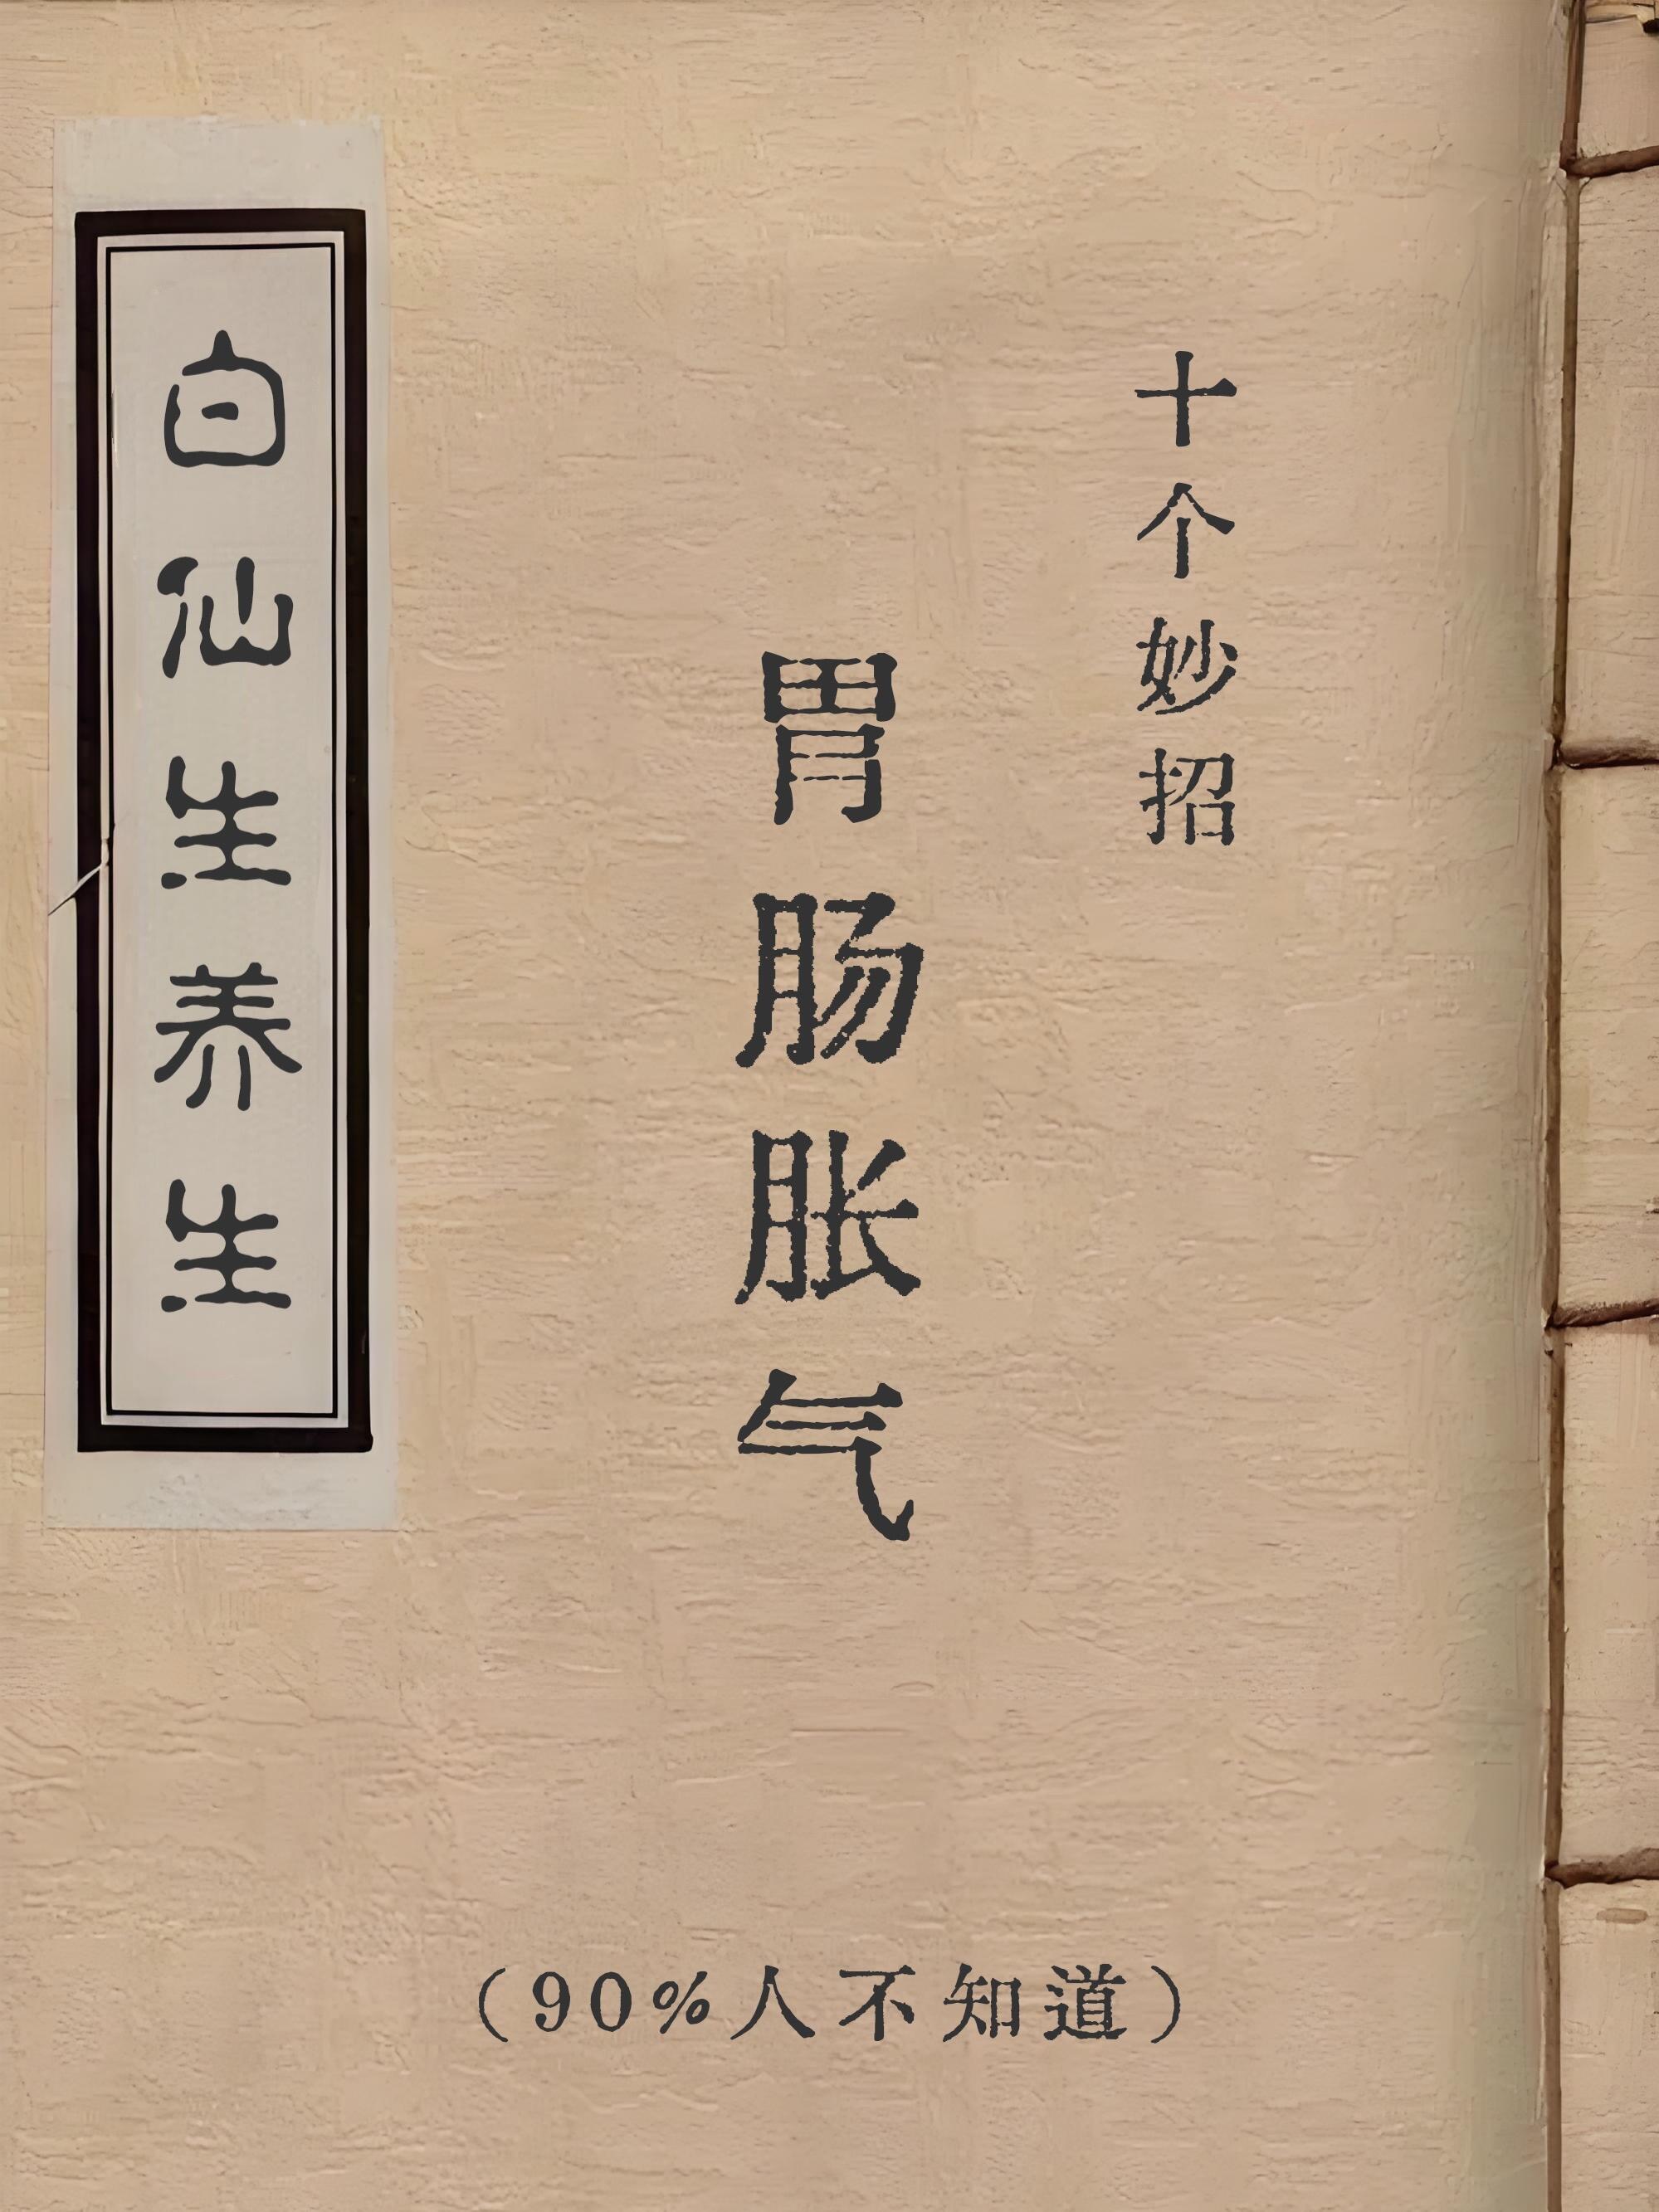 十个妙招
胃肠胀气
白仙生养生
（90%人不知道）